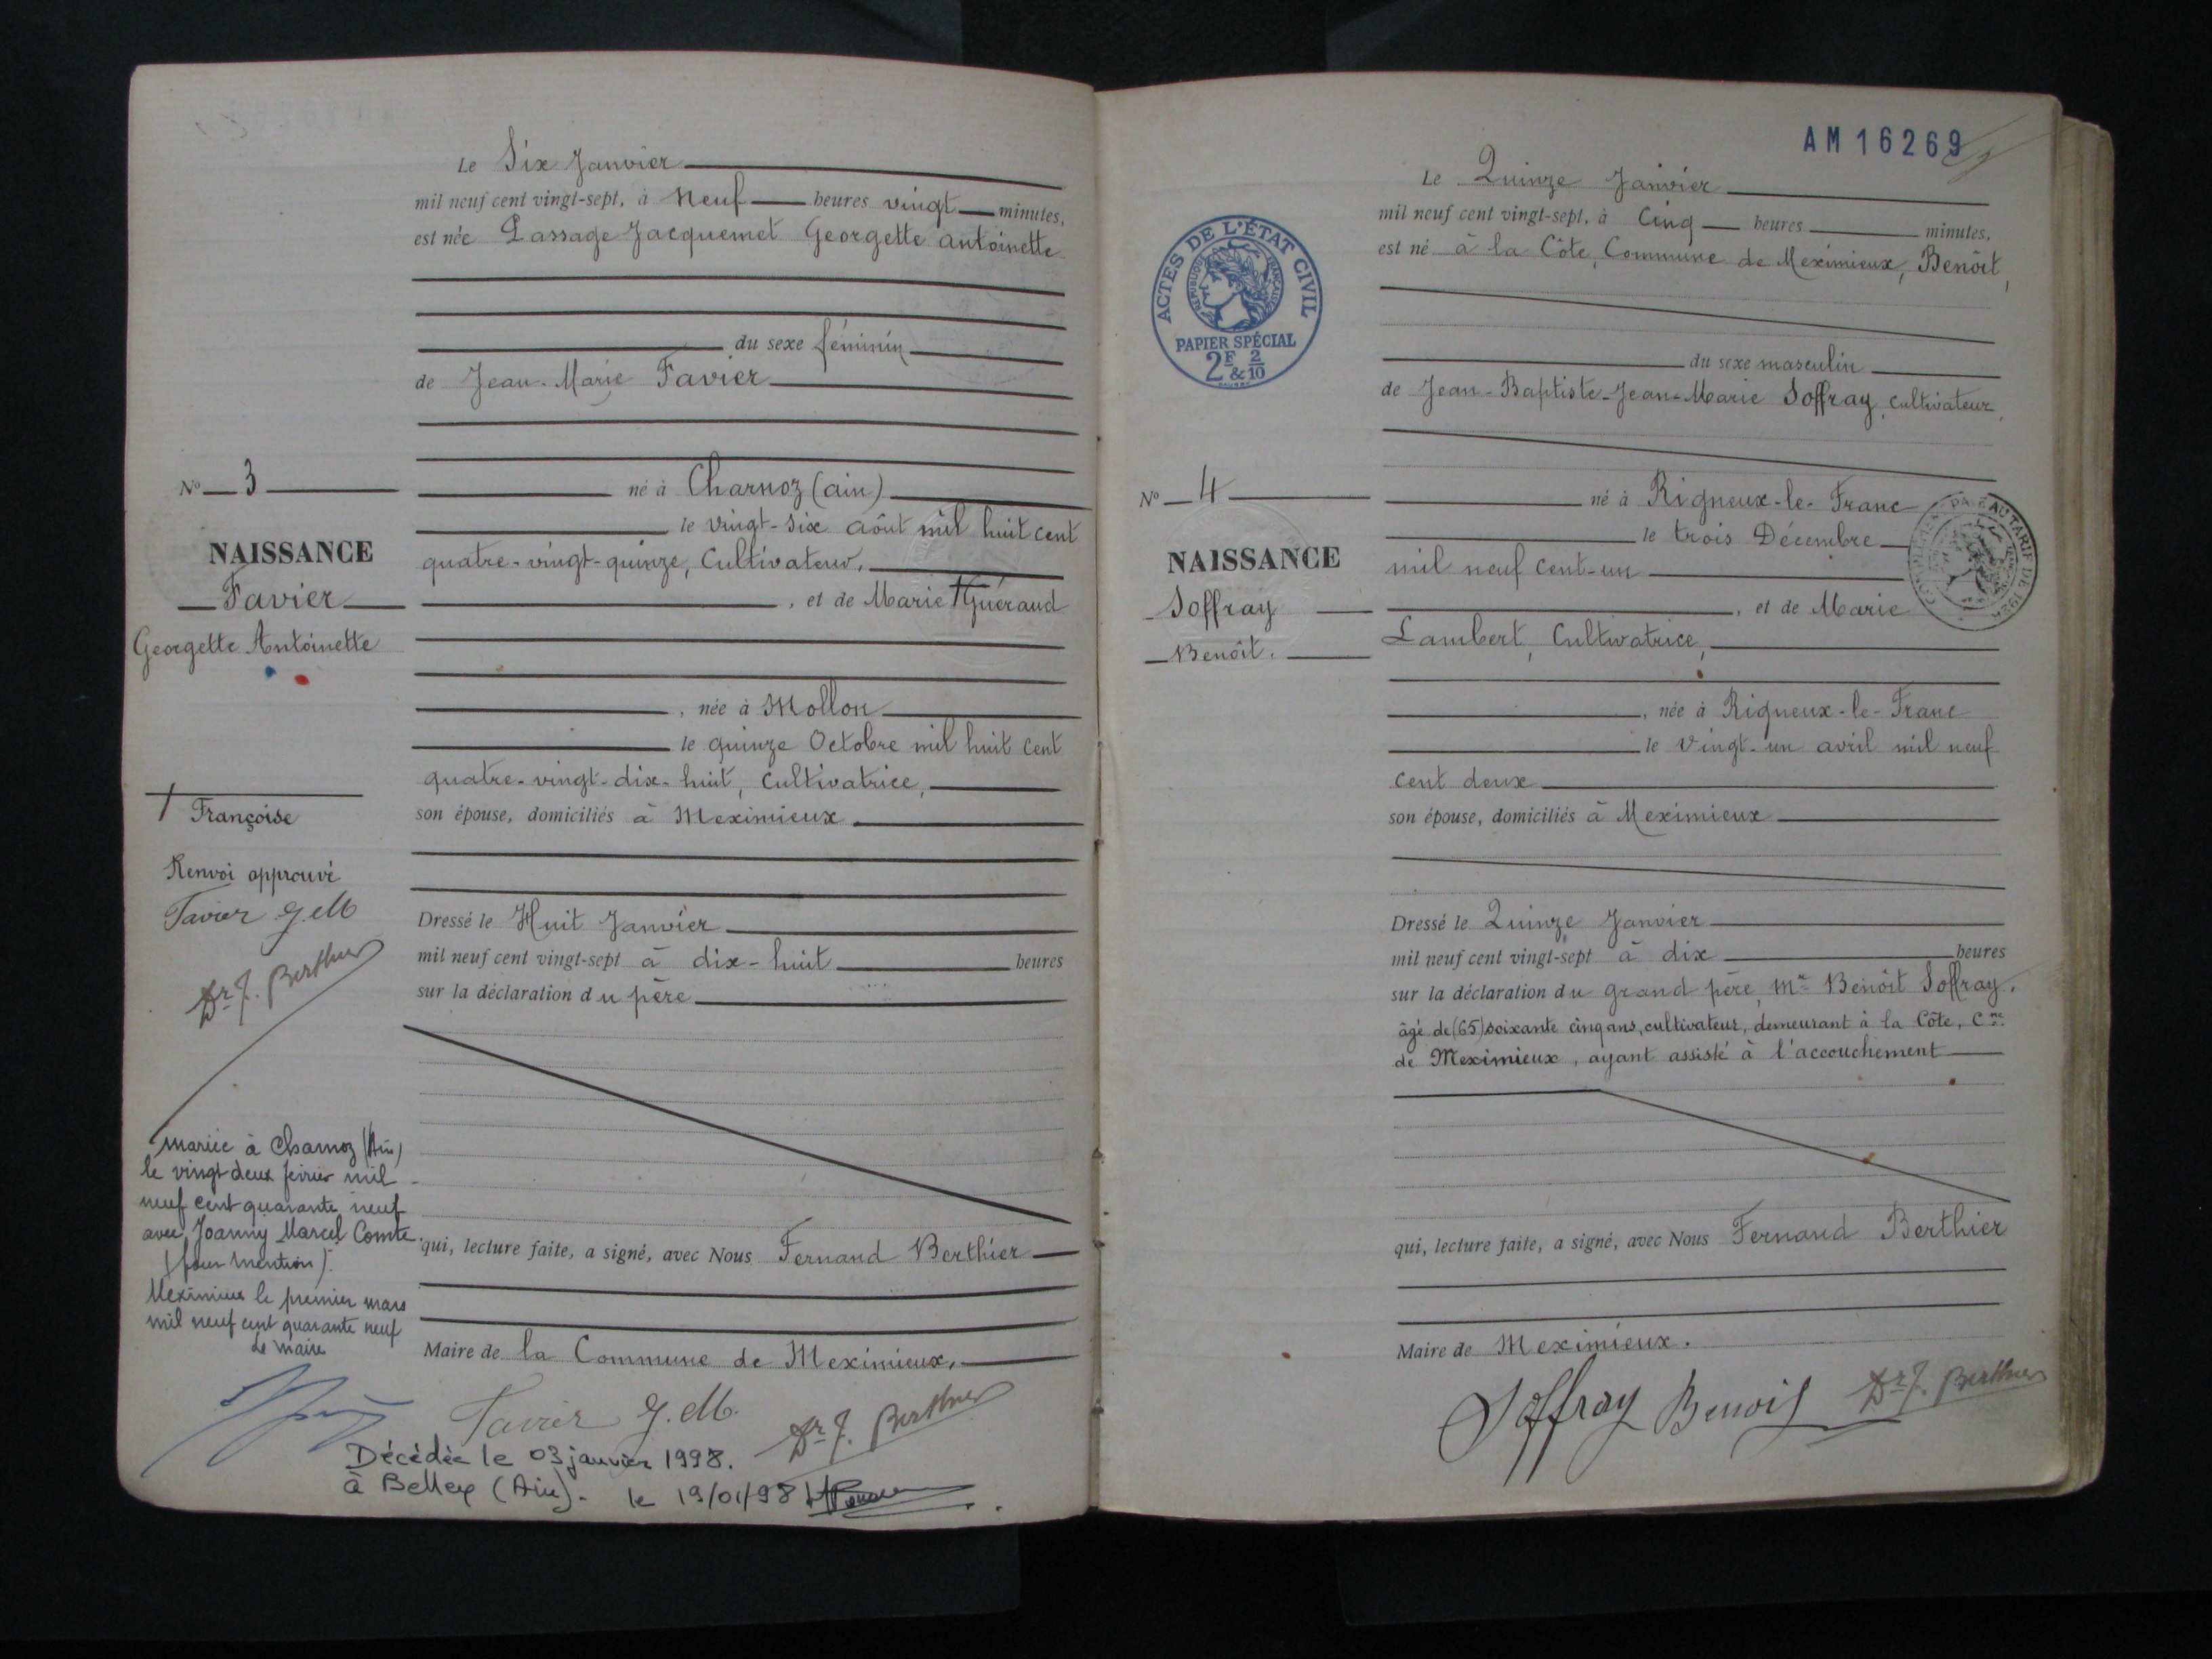 Le Six Janvier
mil neuf cent vingt-sept, à Neuf heures vingt minutes,
est née Passage Jacquemet Georgette Antoinette
du sexe féminin
de Jean-Marie Favier
né à Charnoz (ain)
le vingt-six août mil huit cent
quatre-vingt-quinze, Cultivateur,
, et de Marie † Guéraud
, née à Mollon
le quinze Octobre mil huit cent
quatre-vingt-dix-huit, Cultivatrice,
son épouse, domiciliés à Meximieux
Dressé le Huit Janvier
mil neuf cent vingt-sept à dix-huit heures
sur la déclaration du père
qui, lecture faite, a signé, avec Nous Fernand Berthier
Maire de la Commune de Meximieux,
Favier J. M.
Dr F. Berthier
Décédée le 03 janvier 1998.
à Belley (Ain). le 19/01/98
N° 3
NAISSANCE
Favier
Georgette Antoinette
† Françoise
Renvoi approuvé
Favier J. M
Dr F. Berthier
mariée à Charnoz (Ain)
le vingt deux février mil
neuf cent quarante neuf
avec Joanny Marcel Comte
(pour mention).
Meximieux le premier mars
mil neuf cent quarante neuf
Le maire
AM 16269
Le Quinze Janvier
mil neuf cent vingt-sept, à Cinq heures minutes,
est né à la Côte, Commune de Meximieux, Benoît,
du sexe masculin
de Jean-Baptiste-Jean-Marie Soffray, cultivateur,
né à Rigneux-le-Franc
le trois Décembre
mil neuf cent-un
, et de Marie
Lambert, Cultivatrice,
, née à Rigneux-le-Franc
le vingt-un avril mil neuf
cent deux
son épouse, domiciliés à Meximieux
Dressé le Quinze Janvier
mil neuf cent vingt-sept à dix heures
sur la déclaration du grand père, Mr Benoît Soffray,
âgé de (65) soixante cinq ans, cultivateur, demeurant à la Côte, Cne
de Meximieux, ayant assisté à l'accouchement
qui, lecture faite, a signé, avec Nous Fernand Berthier
Maire de Meximieux.
Soffray Benoit
Dr F. Berthier
N° 4
NAISSANCE
Soffray
Benoît.
ACTES DE L'ÉTAT CIVIL
RÉPUBLIQUE FRANÇAISE
PAPIER SPÉCIAL
2F & 2/10
AU TARIF DE